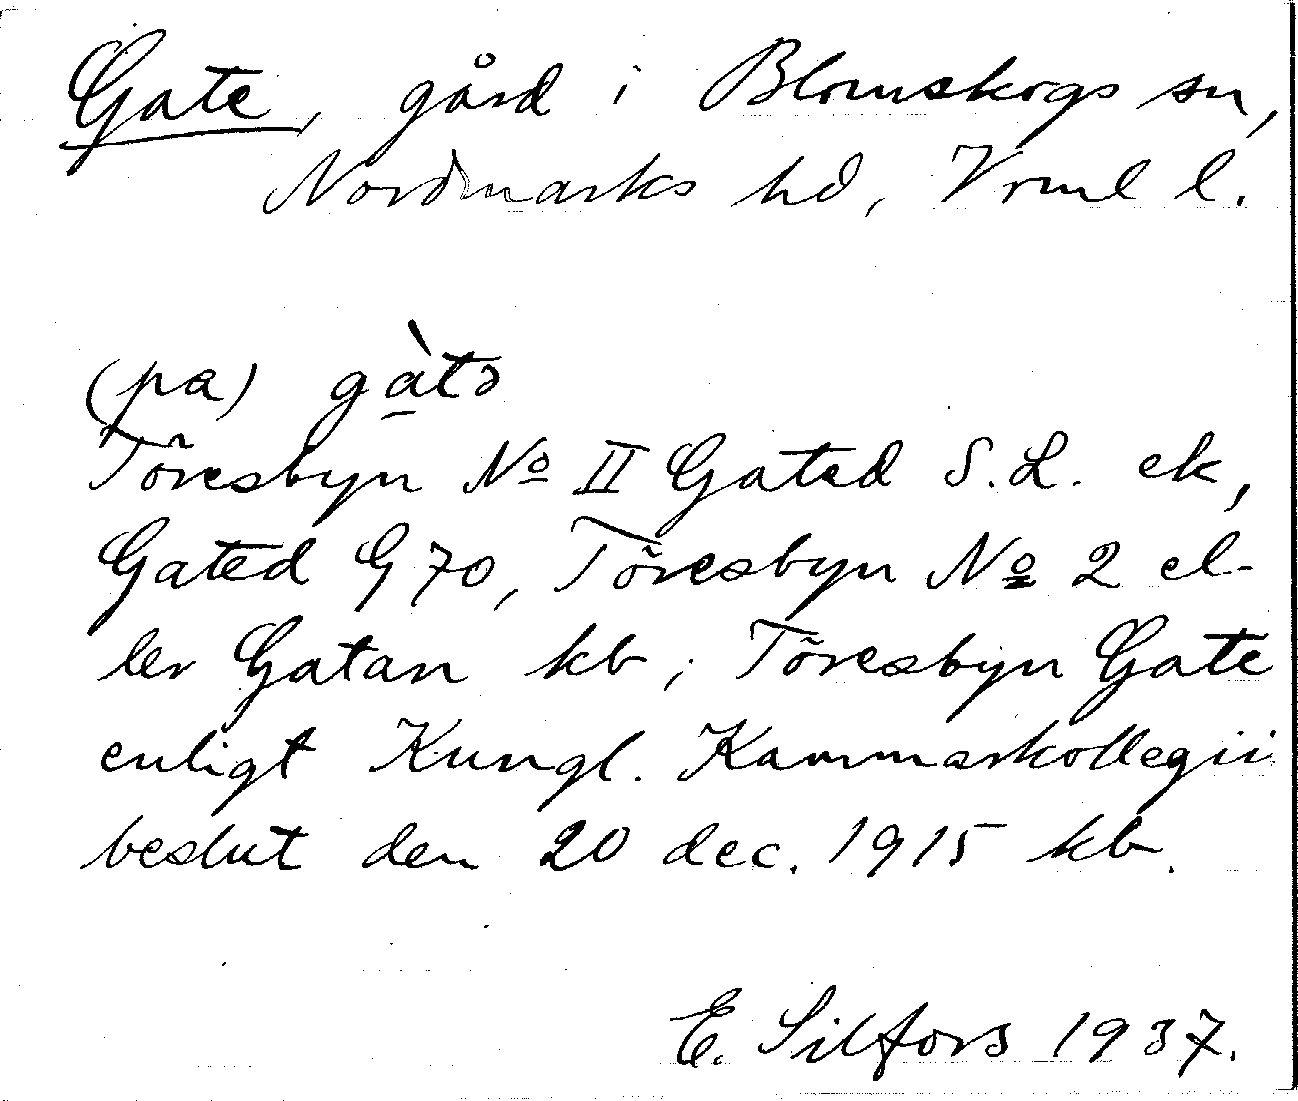 Gate, gård i Blomskogs sn,
Nordmarks hd, Vrml l.
(pa) gàtə
Töresbyn No II Gated S.L. ek,
Gated G 70, Töresbyn No 2 el-
ler Gatan kb; Töresbyn Gate
enligt Kungl. Kammarkollegii
beslut den 20 dec. 1915 kb.
E. Silfors 1937.